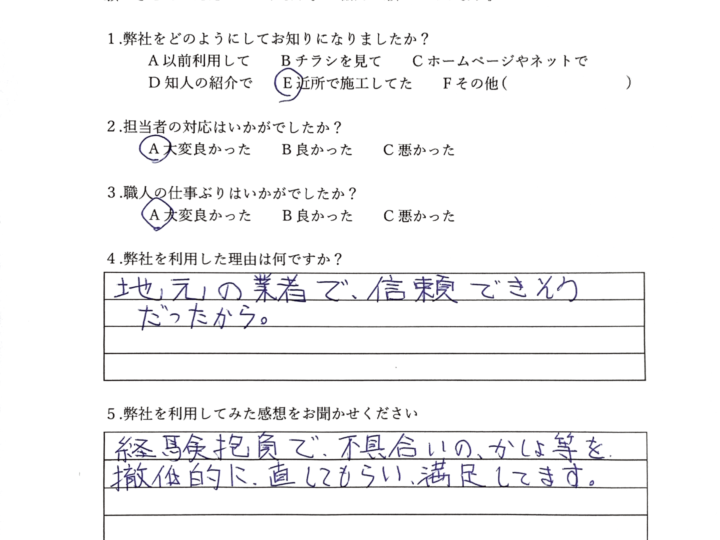 1.弊社をどのようにしてお知りになりましたか？
A以前利用して　Bチラシを見て　Cホームページやネットで
D知人の紹介で　E近所で施工してた　Fその他(　　　)
2.担当者の対応はいかがでしたか？
A大変良かった　B良かった　C悪かった
3.職人の仕事ぶりはいかがでしたか？
A大変良かった　B良かった　C悪かった
4.弊社を利用した理由は何ですか？
地元の業者で、信頼できそう
だったから。
5.弊社を利用してみた感想をお聞かせください
経験抱負で、不具合いの、かしょ等を、
撤低的に、直してもらい、満足してます。